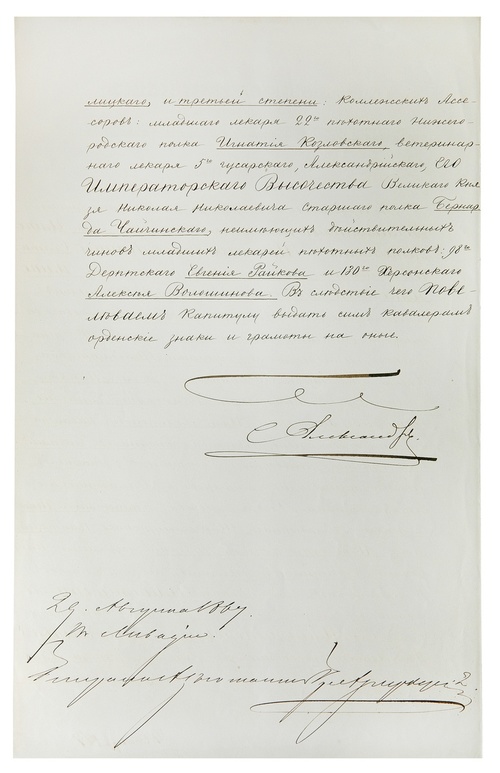 лицкаго, и третьей степени: Коллежскихъ Ассе-
соровъ: младшаго лекаря 22го пѣхотнаго Нижего-
родскаго полка Игнатія Козловскаго, ветеринар-
наго лекаря 5го гусарскаго, Александрійскаго, ЕГО
Императорскаго Высочества Великаго Кня-
зя Николая Николаевича Старшаго полка Бернар-
да Чайчинскаго, неимѣющихъ дѣйствительныхъ
чиновъ младшихъ лекарей пѣхотныхъ полковъ: 98го
Дерптскаго Евгенія Райкова и 130го Херсонскаго
Алексѣя Волошинова. Въ слѣдствіе чего Пове-
лѣваемъ Капитулу выдать симъ кавалерамъ
орденскіе знаки и грамоты на оные.
Александръ
29. Августа 1867.
въ Ливадіи.